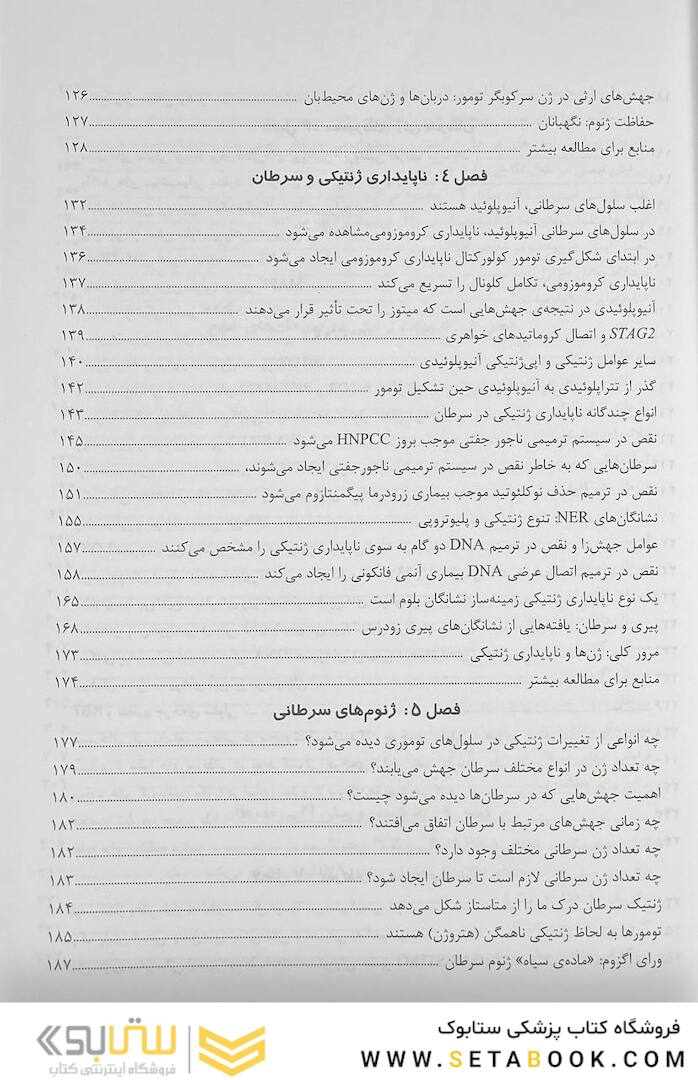 جهش‌های ارثی در ژن سرکوبگر تومور: دربان‌ها و ژن‌های محیط‌بان ........ ۱۲۶
حفاظت ژنوم: نگهبانان ........ ۱۲۷
منابع برای مطالعه بیشتر ........ ۱۲۸
فصل ۴: ناپایداری ژنتیکی و سرطان
اغلب سلول‌های سرطانی، آنیوپلوئید هستند ........ ۱۳۲
در سلول‌های سرطانی آنیوپلوئید، ناپایداری کروموزومی‌مشاهده می‌شود ........ ۱۳۴
در ابتدای شکل‌گیری تومور کولورکتال ناپایداری کروموزومی ایجاد می‌شود ........ ۱۳۶
ناپایداری کروموزومی، تکامل کلونال را تسریع می‌کند ........ ۱۳۷
آنیوپلوئیدی در نتیجه‌ی جهش‌هایی است که میتوز را تحت تأثیر قرار می‌دهند ........ ۱۳۸
STAG2 و اتصال کروماتیدهای خواهری ........ ۱۳۹
سایر عوامل ژنتیکی و اپی‌ژنتیکی آنیوپلوئیدی ........ ۱۴۰
گذر از تتراپلوئیدی به آنیوپلوئیدی حین تشکیل تومور ........ ۱۴۲
انواع چندگانه ناپایداری ژنتیکی در سرطان ........ ۱۴۳
نقص در سیستم ترمیمی ناجور جفتی موجب بروز HNPCC می‌شود ........ ۱۴۵
سرطان‌هایی که به خاطر نقص در سیستم ترمیمی ناجورجفتی ایجاد می‌شوند، ........ ۱۵۰
نقص در ترمیم حذف نوکلئوتید موجب بیماری زرودرما پیگمنتازوم می‌شود ........ ۱۵۱
نشانگان‌های NER: تنوع ژنتیکی و پلیوتروپی ........ ۱۵۵
عوامل جهش‌زا و نقص در ترمیم DNA دو گام به سوی ناپایداری ژنتیکی را مشخص می‌کنند ........ ۱۵۷
نقص در ترمیم اتصال عرضی DNA بیماری آنمی فانکونی را ایجاد می‌کند ........ ۱۵۸
یک نوع ناپایداری ژنتیکی زمینه‌ساز نشانگان بلوم است ........ ۱۶۵
پیری و سرطان: یافته‌هایی از نشانگان‌های پیری زودرس ........ ۱۶۸
مرور کلی: ژن‌ها و ناپایداری ژنتیکی ........ ۱۷۳
منابع برای مطالعه بیشتر ........ ۱۷۴
فصل ۵: ژنوم‌های سرطانی
چه انواعی از تغییرات ژنتیکی در سلول‌های توموری دیده می‌شود؟ ........ ۱۷۷
چه تعداد ژن در انواع مختلف سرطان جهش می‌یابند؟ ........ ۱۷۹
اهمیت جهش‌هایی که در سرطان‌ها دیده می‌شود چیست؟ ........ ۱۸۰
چه زمانی جهش‌های مرتبط با سرطان اتفاق می‌افتند؟ ........ ۱۸۲
چه تعداد ژن سرطانی مختلف وجود دارد؟ ........ ۱۸۲
چه تعداد ژن سرطانی لازم است تا سرطان ایجاد شود؟ ........ ۱۸۳
ژنتیک سرطان درک ما را از متاستاز شکل می‌دهد ........ ۱۸۴
تومورها به لحاظ ژنتیکی ناهمگن (هتروژن) هستند ........ ۱۸۵
ورای اگزوم: «ماده‌ی سیاه» ژنوم سرطان ........ ۱۸۷
فروشگاه کتاب پزشکی ستابوک
WWW.SETABOOK.COM
ستابوک
فروشگاه اینترنتی کتاب